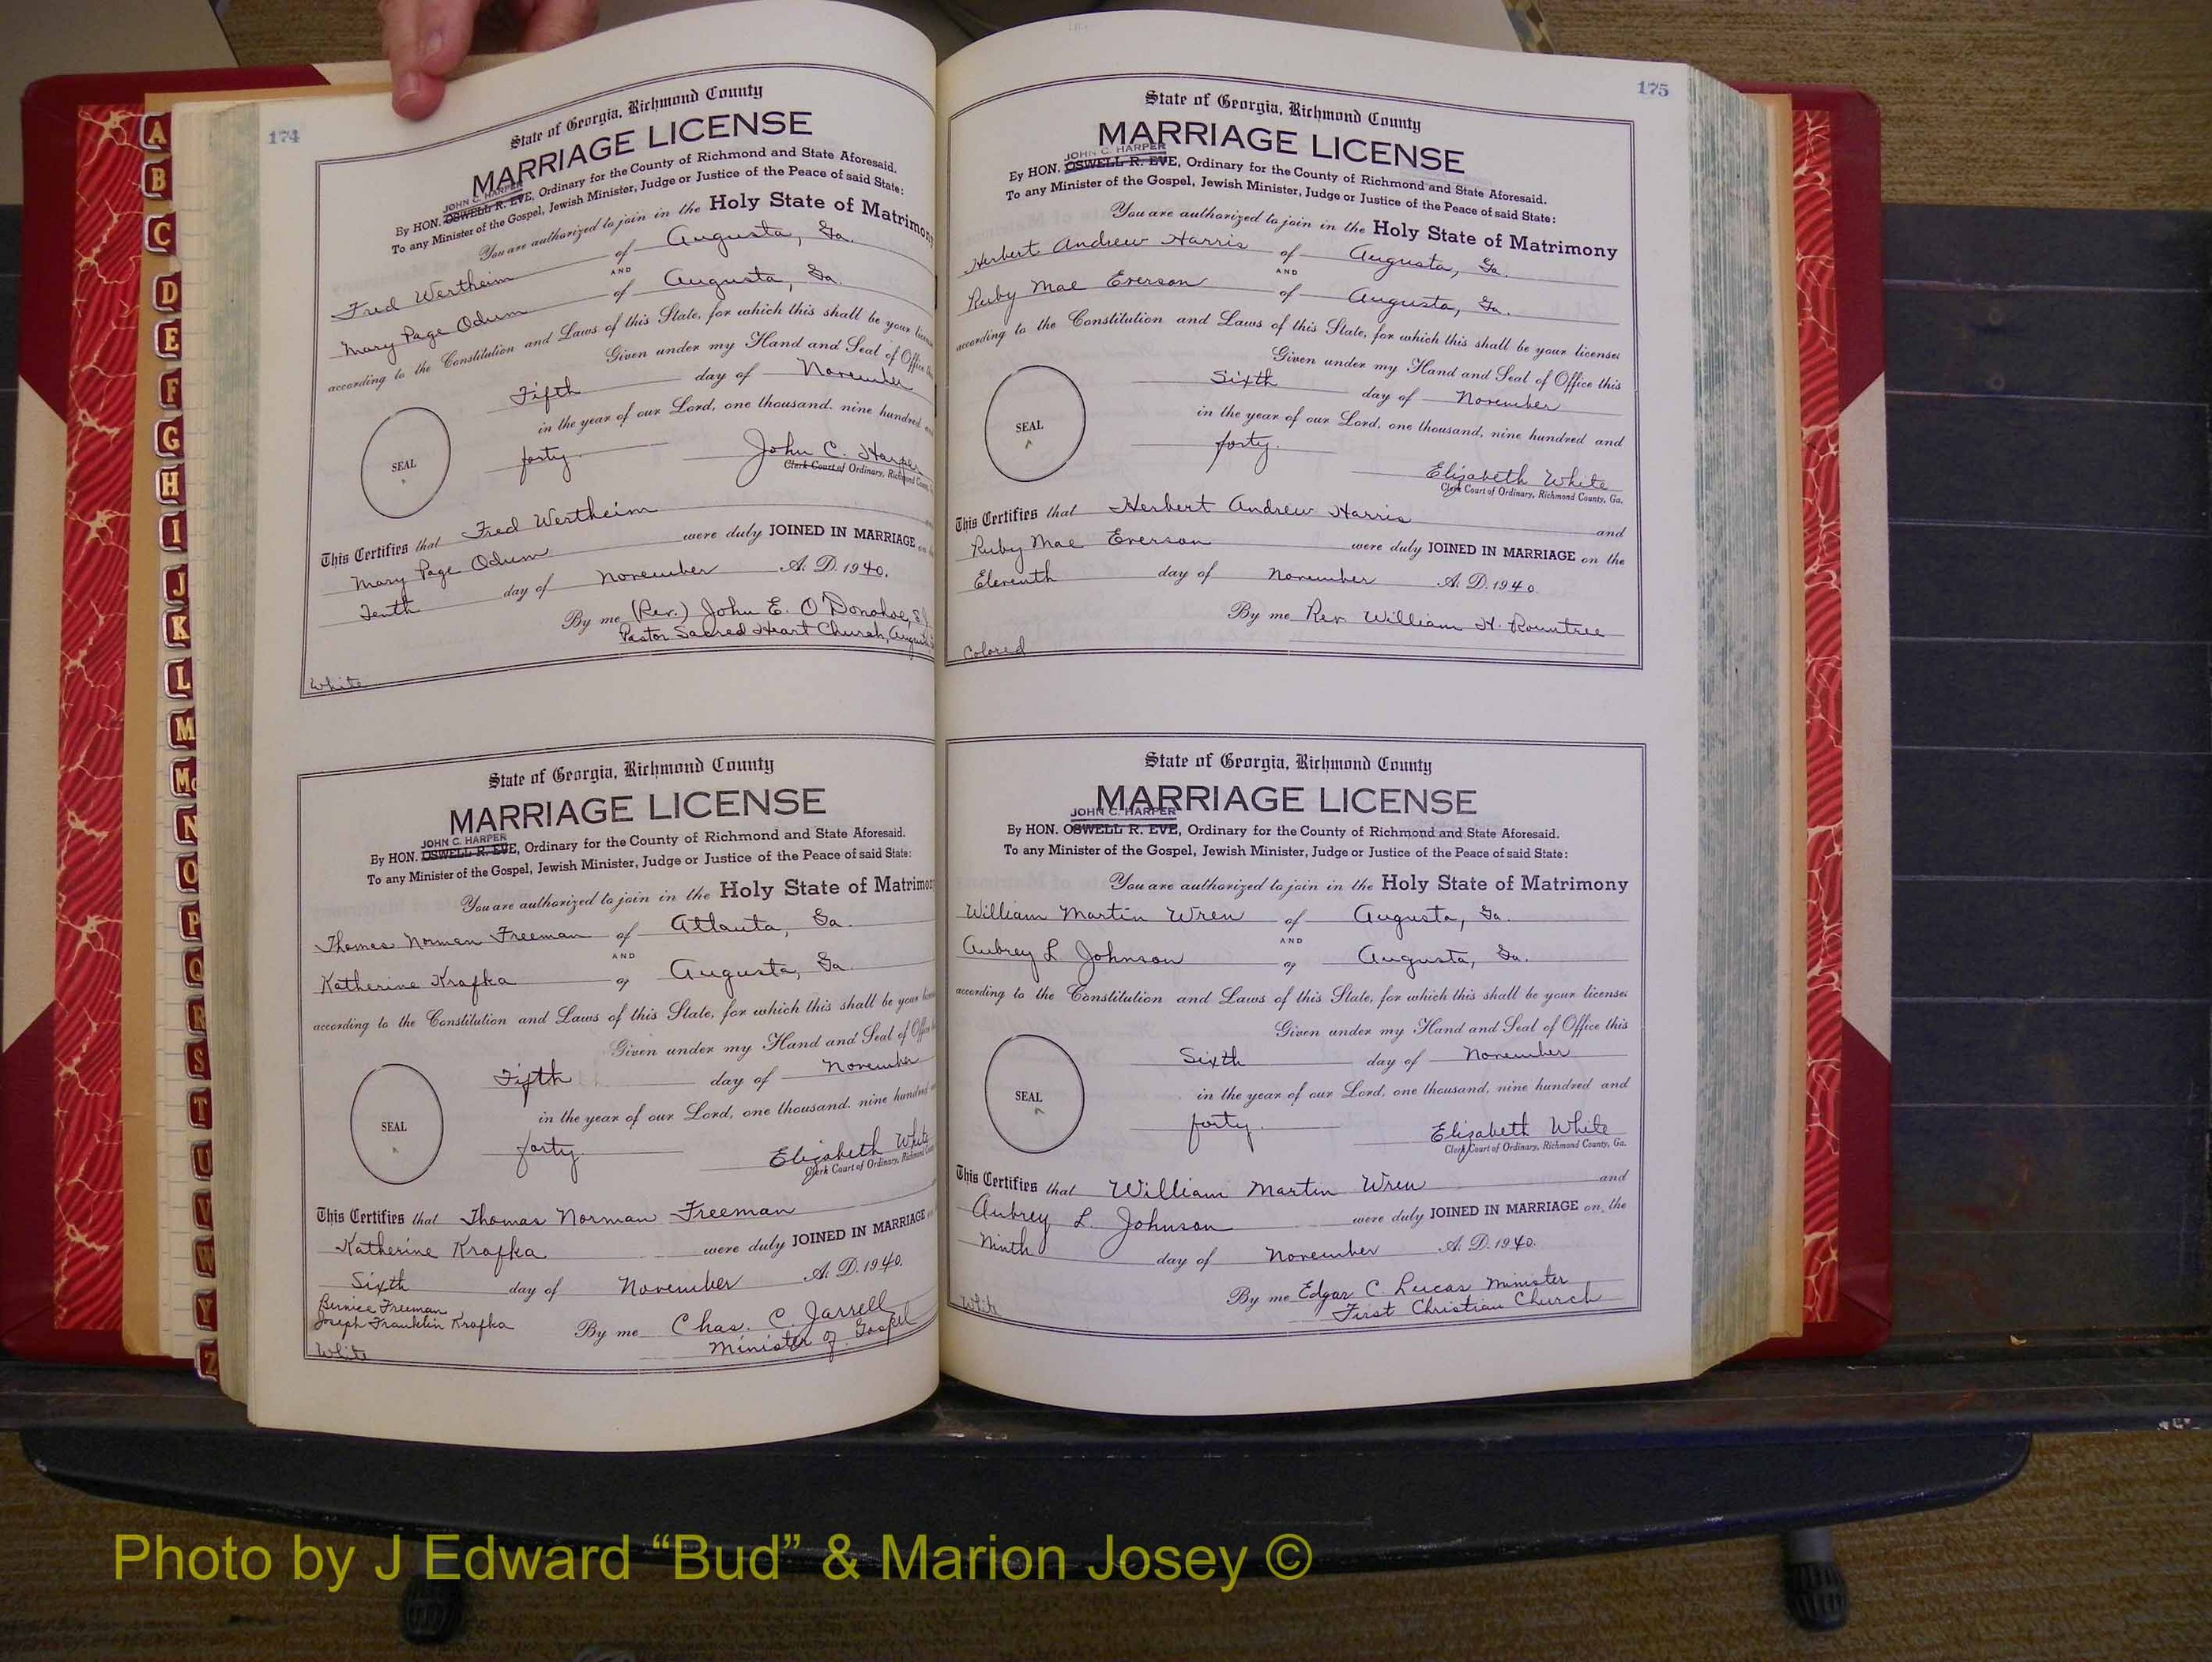 174
A
B
C
D
E
F
G
H
I
J
K
L
M
Mc
N
O
P
Q
R
S
T
U
V
W
Y
Z
State of Georgia, Richmond County
MARRIAGE LICENSE
JOHN C. HARPER
By HON. OSWELL R. EVE, Ordinary for the County of Richmond and State Aforesaid.
To any Minister of the Gospel, Jewish Minister, Judge or Justice of the Peace of said State:
You are authorized to join in the Holy State of Matrimony
Fred Wertheim of Augusta, Ga.
AND
Mary Page Odum of Augusta, Ga.
according to the Constitution and Laws of this State, for which this shall be your license
Given under my Hand and Seal of Office
Fifth day of November
in the year of our Lord, one thousand. nine hundred
SEAL
forty. John C. Harper
Clerk Court of Ordinary, Richmond County
This Certifies that Fred Wertheim
Mary Page Odum were duly JOINED IN MARRIAGE on
Tenth day of November A. D. 1940.
By me (Rev.) John E. O'Donohoe, S.J.
Pastor Sacred Heart Church, Augusta
White
State of Georgia, Richmond County
MARRIAGE LICENSE
JOHN C. HARPER
By HON. OSWELL R. EVE, Ordinary for the County of Richmond and State Aforesaid.
To any Minister of the Gospel, Jewish Minister, Judge or Justice of the Peace of said State:
You are authorized to join in the Holy State of Matrimony
Thomas Norman Freeman of Atlanta, Ga.
AND
Katherine Krafka of Augusta, Ga.
according to the Constitution and Laws of this State, for which this shall be your
Given under my Hand and Seal of Office
Fifth day of November
in the year of our Lord, one thousand. nine hundred
SEAL
forty. Elizabeth White
Clerk Court of Ordinary, Richmond
This Certifies that Thomas Norman Freeman
Katherine Krafka were duly JOINED IN MARRIAGE
Sixth day of November A. D. 1940.
Bernice Freeman
Joseph Franklin Krafka By me Chas. C. Jarrell
Minister of Gospel
White
175
State of Georgia, Richmond County
MARRIAGE LICENSE
JOHN C. HARPER
By HON. OSWELL R. EVE, Ordinary for the County of Richmond and State Aforesaid.
To any Minister of the Gospel, Jewish Minister, Judge or Justice of the Peace of said State:
You are authorized to join in the Holy State of Matrimony
Herbert Andrew Harris of Augusta, Ga.
AND
Ruby Mae Everson of Augusta, Ga.
according to the Constitution and Laws of this State, for which this shall be your license:
Given under my Hand and Seal of Office this
Sixth day of November
in the year of our Lord, one thousand, nine hundred and
SEAL
forty. Elizabeth White
Clerk Court of Ordinary, Richmond County, Ga.
This Certifies that Herbert Andrew Harris and
Ruby Mae Everson were duly JOINED IN MARRIAGE on the
Eleventh day of November A. D. 1940.
By me Rev. William H. Rountree
Colored
State of Georgia, Richmond County
MARRIAGE LICENSE
JOHN C. HARPER
By HON. OSWELL R. EVE, Ordinary for the County of Richmond and State Aforesaid.
To any Minister of the Gospel, Jewish Minister, Judge or Justice of the Peace of said State:
You are authorized to join in the Holy State of Matrimony
William Martin Wren of Augusta, Ga.
AND
Aubrey L Johnson of Augusta, Ga.
according to the Constitution and Laws of this State, for which this shall be your license:
Given under my Hand and Seal of Office this
Sixth day of November
in the year of our Lord, one thousand, nine hundred and
SEAL
forty. Elizabeth White
Clerk Court of Ordinary, Richmond County, Ga.
This Certifies that William Martin Wren and
Aubrey L. Johnson were duly JOINED IN MARRIAGE on the
Ninth day of November A. D. 1940.
By me Edgar C. Lucas Minister
First Christian Church
White
Photo by J Edward “Bud” & Marion Josey ©